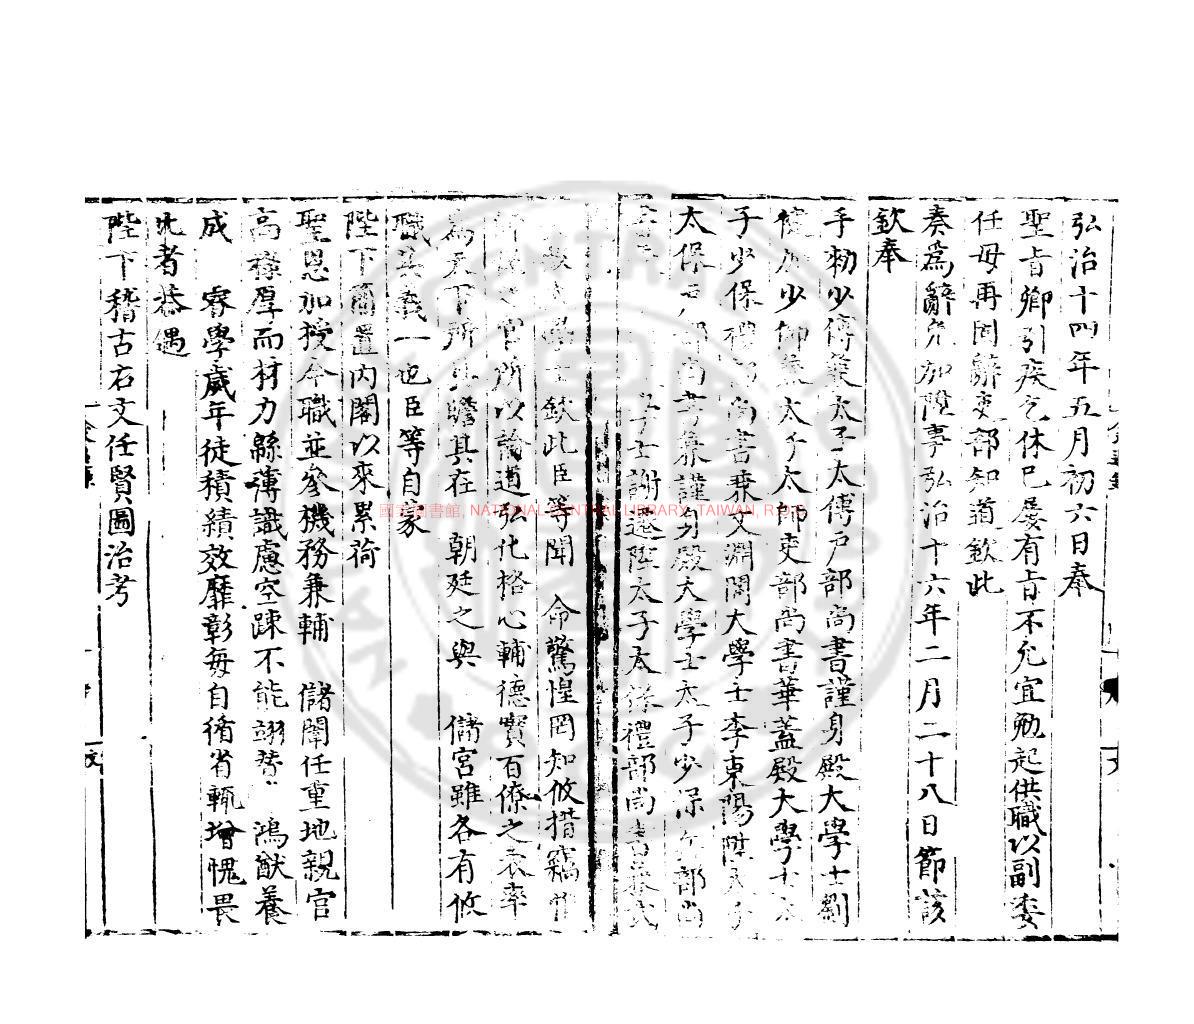 弘治十四年五月初六日奉
聖旨卿引疾乞休已屡有旨不允宜勉起供職以副委
任毋再固辭吏部知道欽此
奏為辭免加陞事弘治十六年二月二十八日節該
欽奉
手勑少傅蒹太子太傅户部尚書謹身殿大學士劉
健加少師蒹太子太師吏部尚書華蓋殿大學士太
子少保禮部尚書蒹文淵閣大學士李東陽陞太子
太保户部尚書蒹謹身殿大學士太子少保兵部尚
學士謝遷陞太子太保禮部尚書蒹武
學士欽此臣等聞 命驚惶罔知攸措竊惟
官所以論道弘化格心輔德實百僚之表率
為天下所具瞻其在 朝廷之與 儲宮雖各有攸
職其義一也臣等自蒙
陛下簡置内閣以來累荷
聖恩加授今職並參機務兼輔 儲闈任重地親官
高祿厚而材力緜薄識慮空踈不能翊替 鴻猷養
成 睿學歲年徒積績效靡彰每自循省輒增愧畏
兆者恭遇
陛下稽古右文任賢圖治考
國家圖書館, NATIONAL CENTRAL LIBRARY, TAIWAN, R.O.C